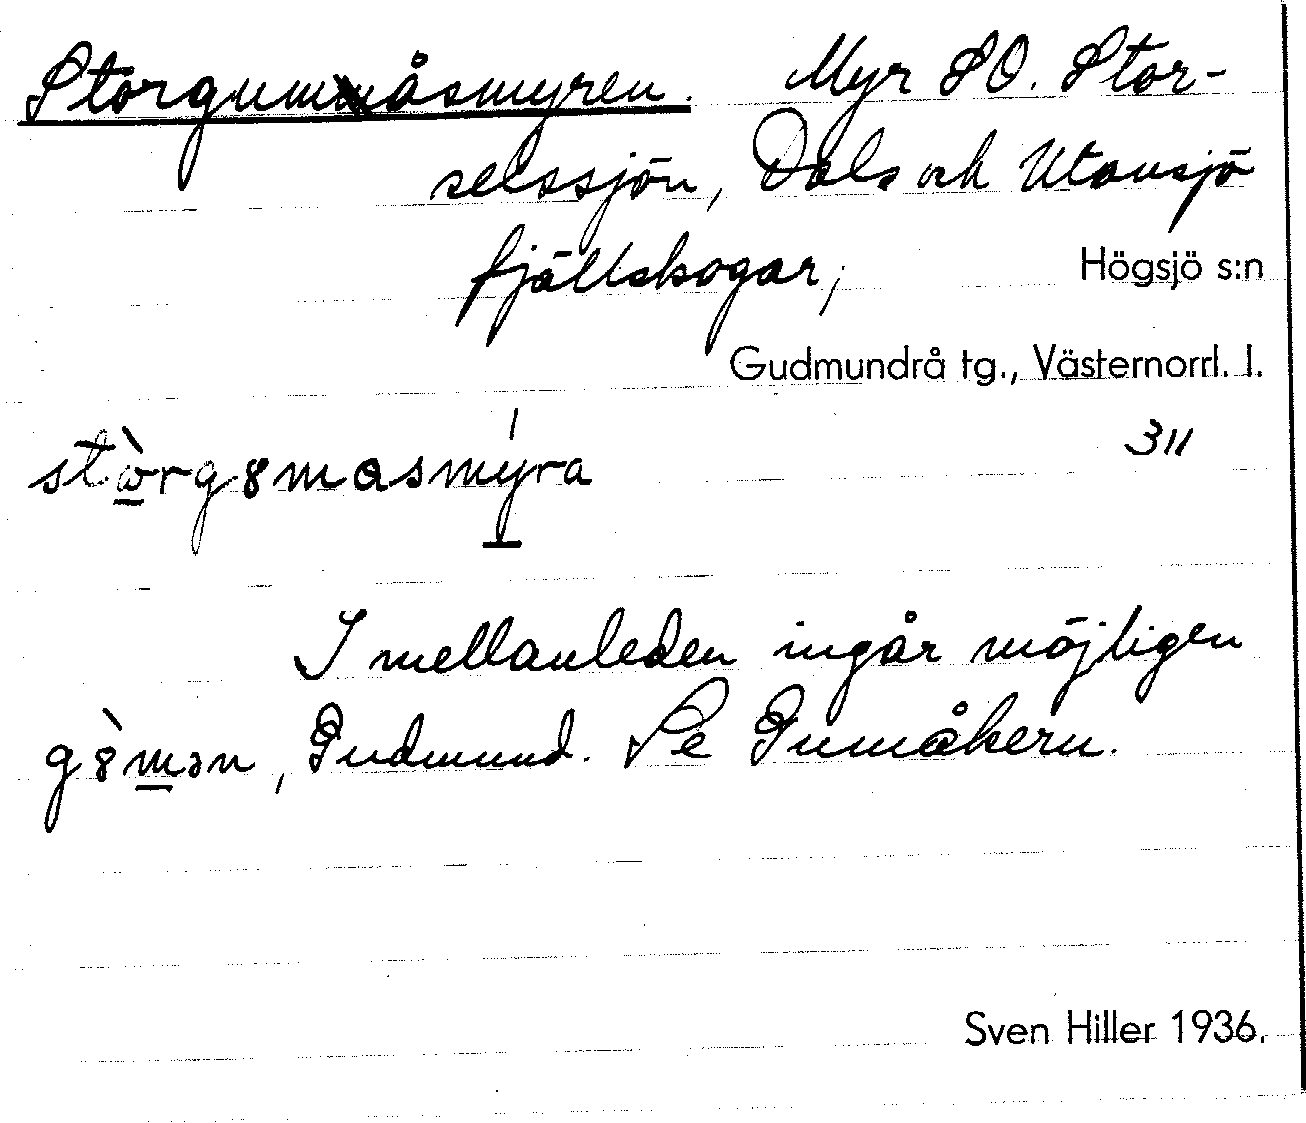 Storgumåsmyren. Myr SO. Stor-
selssjön, Dals och Utansjö
fjällskogar, Högsjö s:n
Gudmundrå tg., Västernorrl. l.
311
stòrg8masmýra
I mellanleden ingår möjligen
g8̀mən, Gudmund. Se Gumåkern.
Sven Hiller 1936.